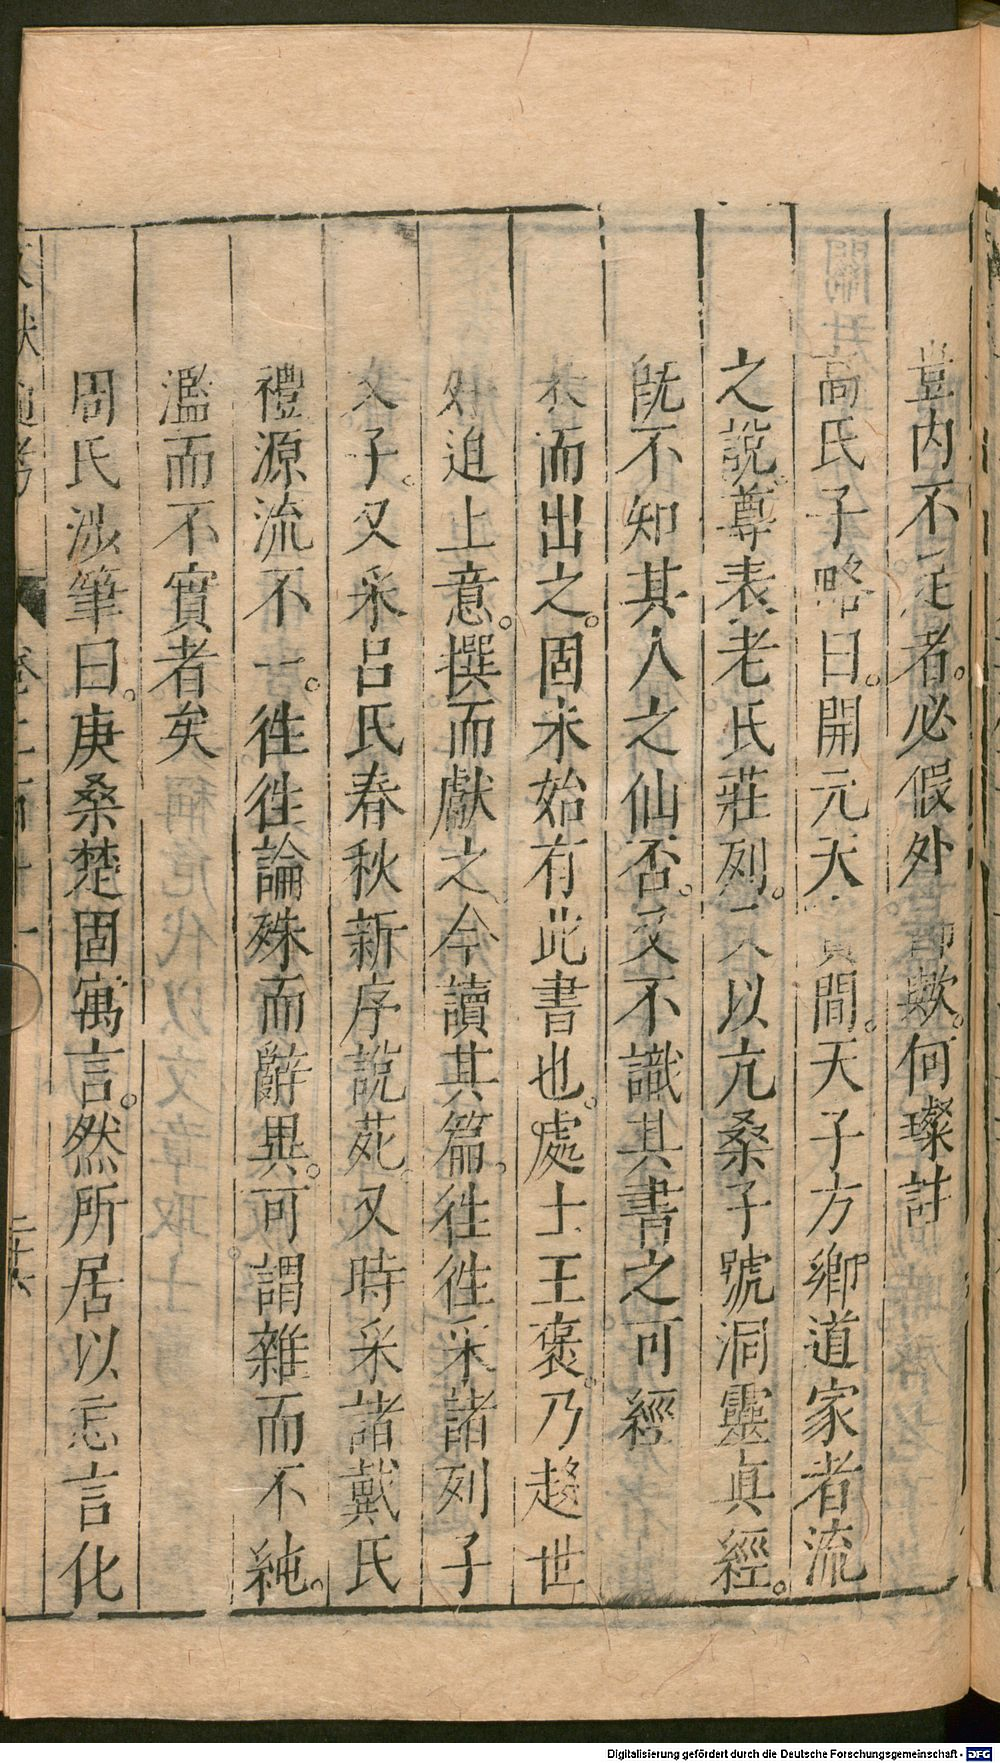 豈内不足者。必假外飾歟。何璨註
高氏子略曰。開元天寶間。天子方鄉道家者流
之說。尊表老氏莊列。又以亢桑子號洞靈眞經。
旣不知其人之仙否。又不識其書之可經
本而出之。固未始有此書也。處士王褒。乃趍世
好迫上意。撰而獻之今讀其篇。徃徃采諸列子
文子。又采呂氏春秋新序說苑。又時采諸戴氏
禮源流不一。徃徃論殊而辭異。可謂雜而不純。
濫而不實者矣
周氏涉筆曰。庚桑楚固寓言。然所居以忘言化
文獻通考 卷二百十一 二十六
Digitalisierung gefördert durch die Deutsche Forschungsgemeinschaft - DFG